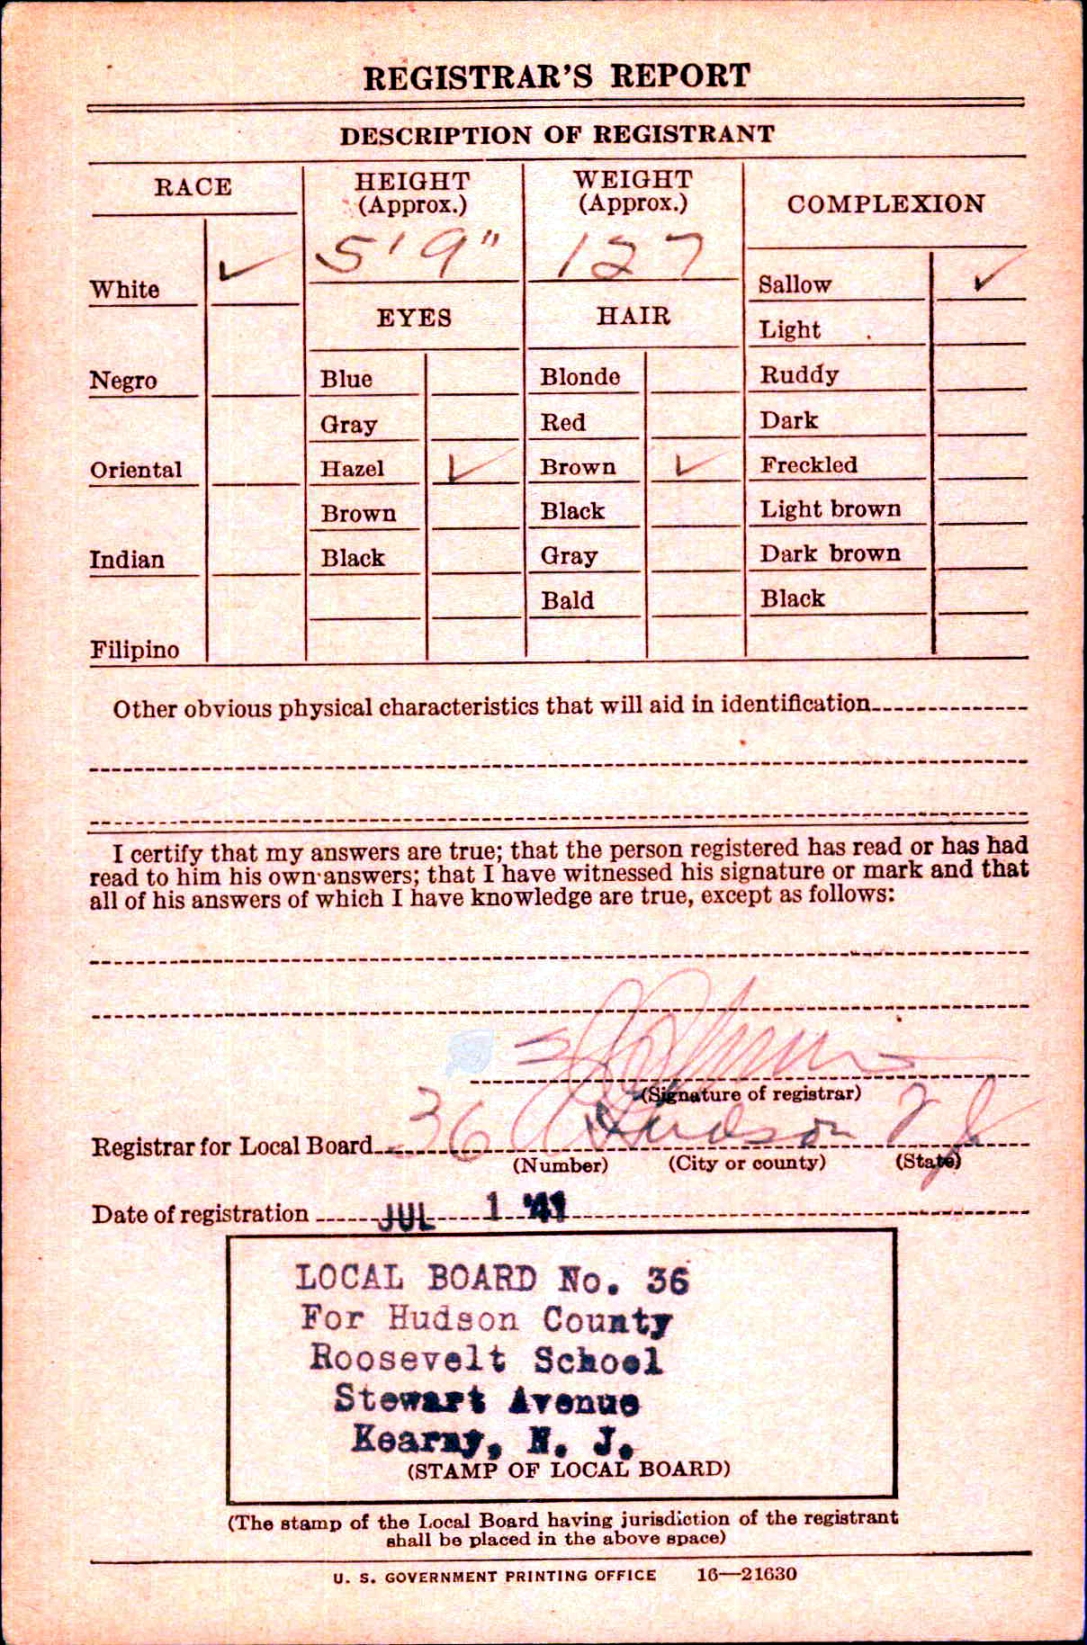 REGISTRAR'S REPORT
DESCRIPTION OF REGISTRANT
RACE
HEIGHT
(Approx.)
WEIGHT
(Approx.)
COMPLEXION
5' 9"
127
White ✓
EYES
HAIR
Sallow ✓
Light
Negro
Blue
Blonde
Ruddy
Gray
Red
Dark
Oriental
Hazel ✓
Brown ✓
Freckled
Brown
Black
Light brown
Indian
Black
Gray
Dark brown
Bald
Black
Filipino
Other obvious physical characteristics that will aid in identification
I certify that my answers are true; that the person registered has read or has had
read to him his own answers; that I have witnessed his signature or mark and that
all of his answers of which I have knowledge are true, except as follows:
(Signature of registrar)
Registrar for Local Board 36 Hudson N J
(Number) (City or county) (State)
Date of registration JUL 1 '41
LOCAL BOARD No. 36
For Hudson County
Roosevelt School
Stewart Avenue
Kearny, N. J.
(STAMP OF LOCAL BOARD)
(The stamp of the Local Board having jurisdiction of the registrant
shall be placed in the above space)
U. S. GOVERNMENT PRINTING OFFICE 16—21630